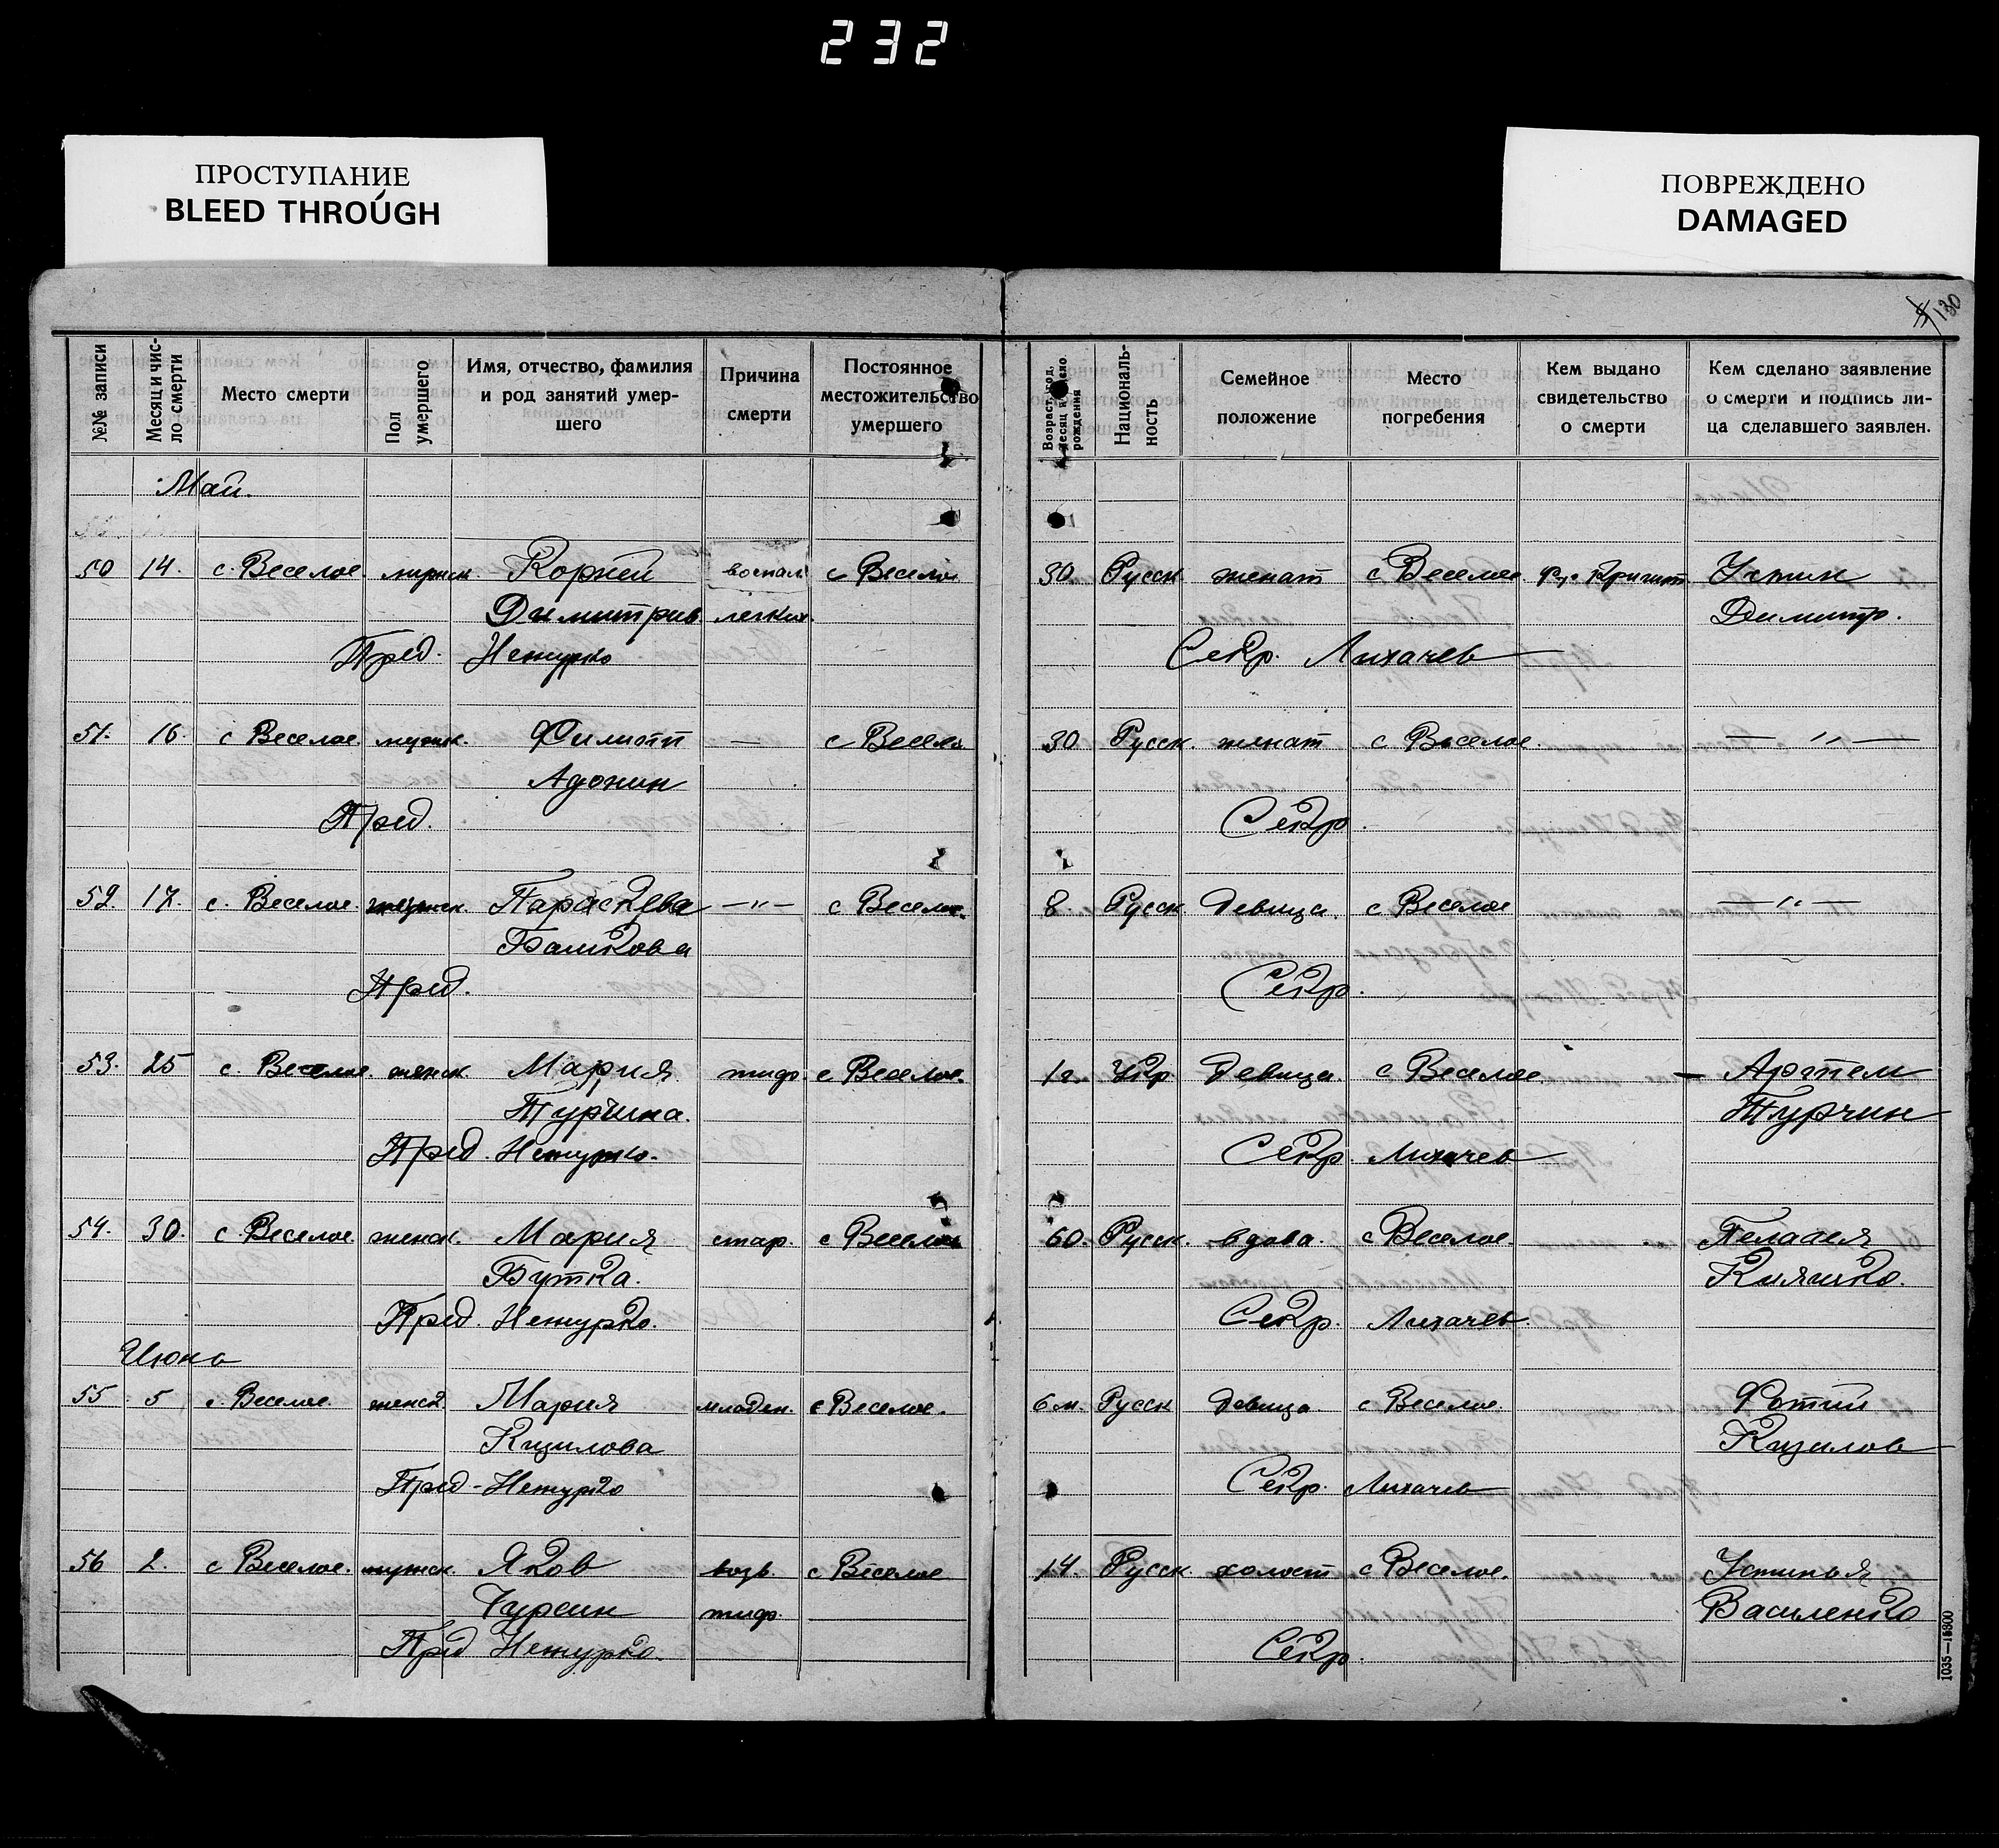 232
ПРОСТУПАНИЕ
BLEED THROUGH
ПОВРЕЖДЕНО
DAMAGED
130
№№ записи
Месяц и чис-
ло смерти
Место смерти
Пол
умершего
Имя, отчество, фамилия
и род занятий умер-
шего
Причина
смерти
Постоянное
местожительство
умершего
Возраст, год,
месяц и число
рождения
Националь-
ность
Семейное
положение
Место
погребения
Кем выдано
свидетельство
о смерти
Кем сделано заявление
о смерти и подпись ли-
ца сделавшего заявлен.
Май.
50 14. с. Веселое мужск. Корней воспал. с Веселое 30. Русск женат с Веселое. Устин
Димитрив. легких. Димитр.
Пред. Нетурко Секр. Лихачев
51. 16. с Веселое. мужск. Филипп — с Весело 30. Русск. женат с Веселое. — " —
Адонин
Пред. Секр.
52. 17. с. Веселое. женск. Параскева — " — с Веселое. 8. Русск девица. с Веселое — " —
Башкова
Пред. Секр.
53. 25 с. Веселое. женск. Мария тиф. с Веселое. 1г. Укр. девица. с Веселое. — Артем
Турчина. Турчин
Пред. Нетурко. Секр. Лихачев
54. 30. с Веселое. женск. Мария стар. с Веселое 60. Русск. вдова. с Веселое. Пелагея
Бутка. Книшко.
Пред. Нетурко. Секр. Лихачев.
Июнь
55 5 с. Веселое. женск Мария младен. с Веселое. 6 м. Русск девица. с Веселое. Фотий
Кизилова Кизилов
Пред - Нетурко Секр. Лихачев
56 2. с Веселое. мужск. Яков возв. с Веселое 14. Русск. холост с Веселое. Устинья
Чурсин тиф. Василенко
Пред Нетурко. Секр.
1035—15800